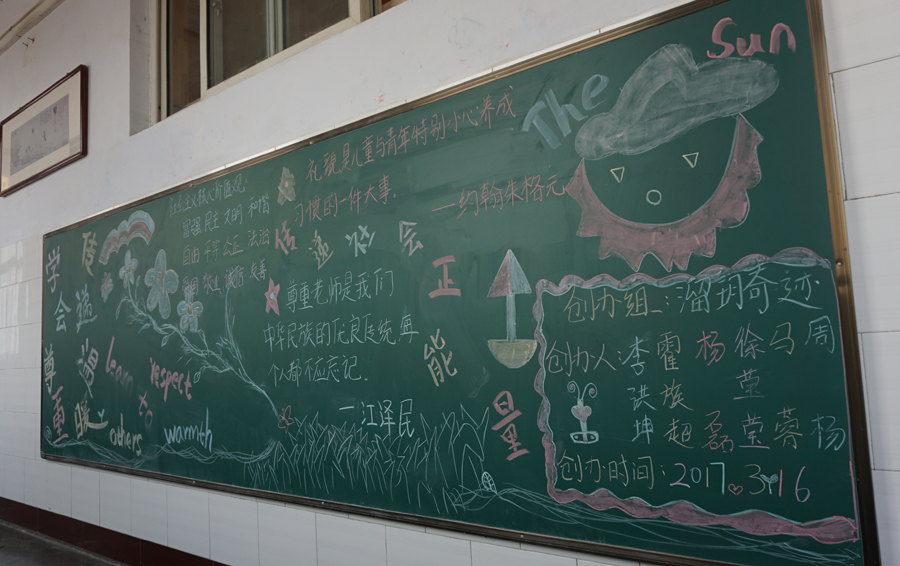 学会尊重
递温暖
learn
respect
to
others
warmth
社会主义核心价值观
富强 民主 文明 和谐
自由 平等 公正 法治
爱国 敬业 诚信 友善
礼貌是儿童与青年特别小心养成
习惯的一件大事.
—约翰朱格元
The Sun
传递社会正能量
尊重老师是我们
中华民族的优良传统每
个人都不应忘记.
—江泽民
创办组:溜玥奇迹
创办人:李 霍 杨 徐 马 周
洪 族
坤 超 磊 莹 蓉 杨
创办时间:2017.3.16